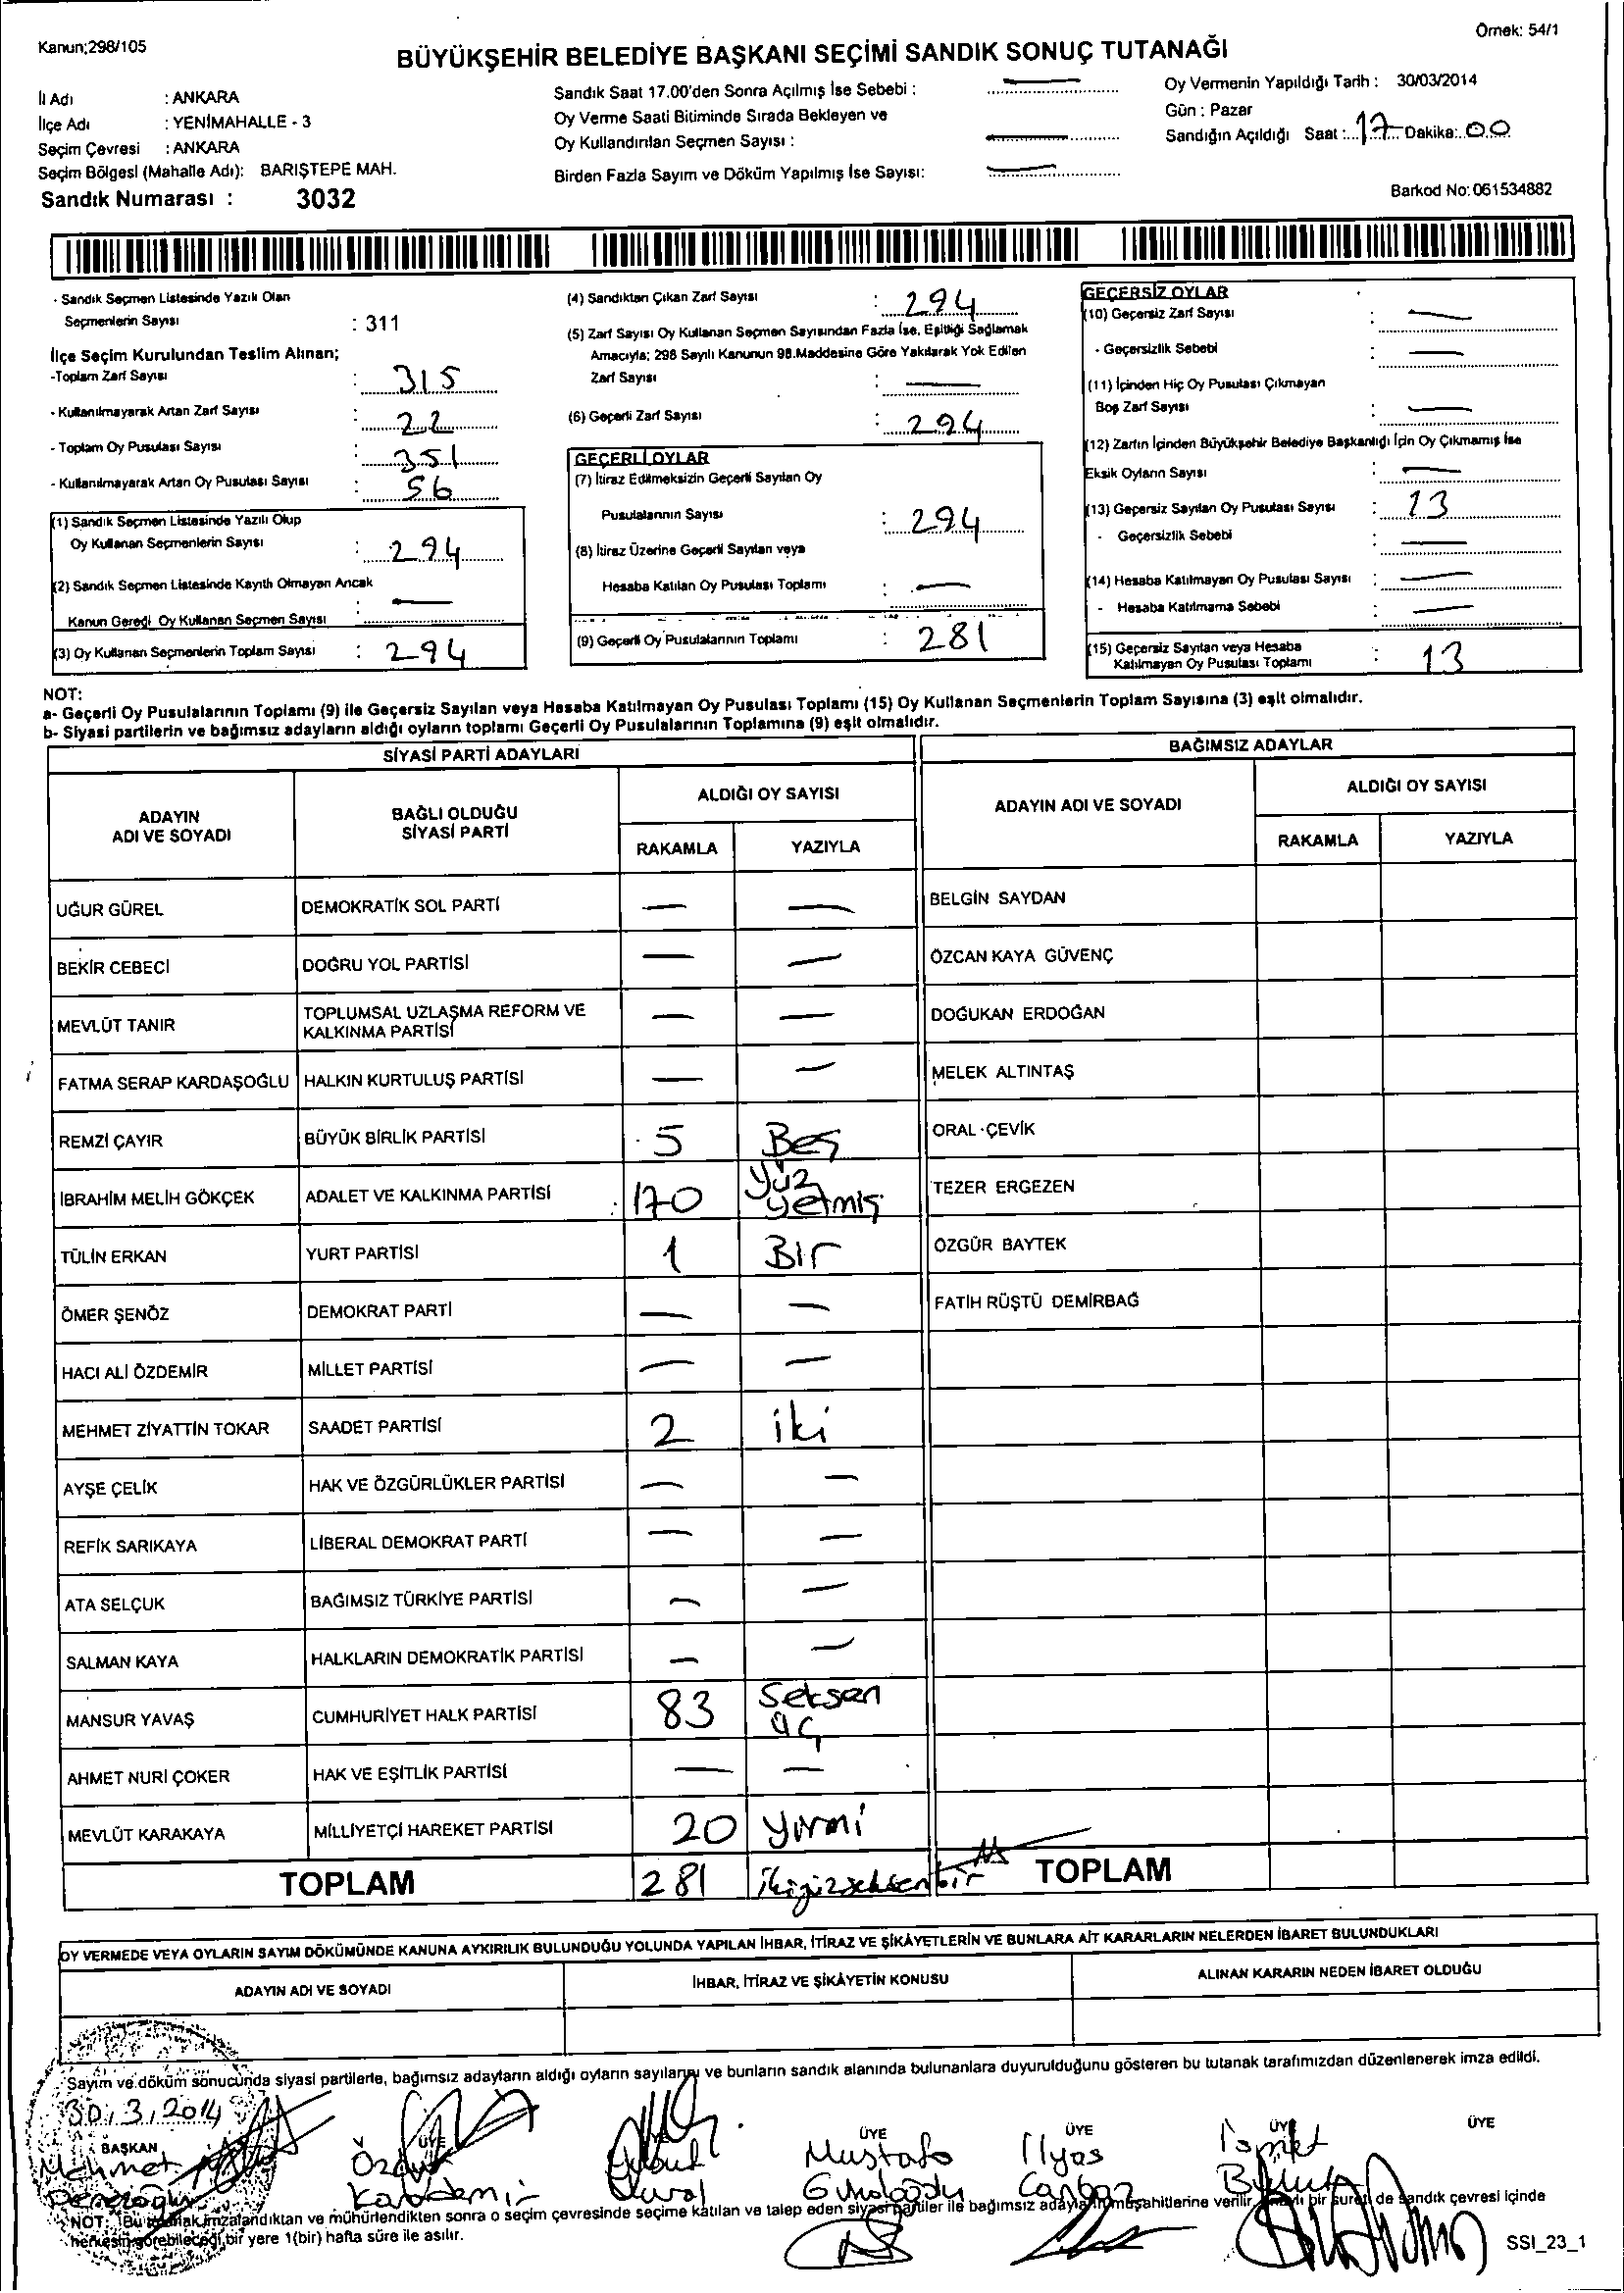 Kanun;298/105
Örnek: 54/1
BÜYÜKŞEHİR BELEDİYE BAŞKANI SEÇİMİ SANDIK SONUÇ TUTANAĞI
İl Adı : ANKARA
İlçe Adı : YENİMAHALLE - 3
Seçim Çevresi : ANKARA
Seçim Bölgesi (Mahalle Adı): BARIŞTEPE MAH.
Sandık Numarası : 3032
Sandık Saat 17.00'den Sonra Açılmış İse Sebebi : —
Oy Verme Saati Bitiminde Sırada Bekleyen ve
Oy Kullandırılan Seçmen Sayısı : —
Birden Fazla Sayım ve Döküm Yapılmış İse Sayısı: —
Oy Vermenin Yapıldığı Tarih : 30/03/2014
Gün : Pazar
Sandığın Açıldığı Saat :...17... Dakika:..00
Barkod No:061534882
- Sandık Seçmen Listesinde Yazılı Olan
Seçmenlerin Sayısı : 311
İlçe Seçim Kurulundan Teslim Alınan;
-Toplam Zarf Sayısı : 315
- Kullanılmayarak Artan Zarf Sayısı : 22
- Toplam Oy Pusulası Sayısı : 351
- Kullanılmayarak Artan Oy Pusulası Sayısı : 56
(1) Sandık Seçmen Listesinde Yazılı Olup
Oy Kullanan Seçmenlerin Sayısı : 294
(2) Sandık Seçmen Listesinde Kayıtlı Olmayan Ancak
Kanun Gereği Oy Kullanan Seçmen Sayısı : —
(3) Oy Kullanan Seçmenlerin Toplam Sayısı : 294
(4) Sandıktan Çıkan Zarf Sayısı : 294
(5) Zarf Sayısı Oy Kullanan Seçmen Sayısından Fazla İse, Eşitliği Sağlamak
Amacıyla; 298 Sayılı Kanunun 98.Maddesine Göre Yakılarak Yok Edilen
Zarf Sayısı : —
(6) Geçerli Zarf Sayısı : 294
GEÇERLİ OYLAR
(7) İtiraz Edilmeksizin Geçerli Sayılan Oy
Pusulalarının Sayısı : 294
(8) İtiraz Üzerine Geçerli Sayılan veya
Hesaba Katılan Oy Pusulası Toplamı : —
(9) Geçerli Oy Pusulalarının Toplamı : 281
GEÇERSİZ OYLAR
(10) Geçersiz Zarf Sayısı : —
- Geçersizlik Sebebi : —
(11) İçinden Hiç Oy Pusulası Çıkmayan
Boş Zarf Sayısı : —
(12) Zarfın İçinden Büyükşehir Belediye Başkanlığı İçin Oy Çıkmamış İse
Eksik Oyların Sayısı : —
(13) Geçersiz Sayılan Oy Pusulası Sayısı : 13
- Geçersizlik Sebebi : —
(14) Hesaba Katılmayan Oy Pusulası Sayısı : —
- Hesaba Katılmama Sebebi : —
(15) Geçersiz Sayılan veya Hesaba
Katılmayan Oy Pusulası Toplamı : 13
NOT:
a- Geçerli Oy Pusulalarının Toplamı (9) ile Geçersiz Sayılan veya Hesaba Katılmayan Oy Pusulası Toplamı (15) Oy Kullanan Seçmenlerin Toplam Sayısına (3) eşit olmalıdır.
b- Siyasi partilerin ve bağımsız adayların aldığı oyların toplamı Geçerli Oy Pusulalarının Toplamına (9) eşit olmalıdır.
SİYASİ PARTİ ADAYLARI
BAĞIMSIZ ADAYLAR
ADAYIN ADI VE SOYADI
BAĞLI OLDUĞU SİYASİ PARTİ
ALDIĞI OY SAYISI
RAKAMLA YAZIYLA
ADAYIN ADI VE SOYADI
ALDIĞI OY SAYISI
RAKAMLA YAZIYLA
UĞUR GÜREL DEMOKRATİK SOL PARTİ — — BELGİN SAYDAN
BEKİR CEBECİ DOĞRU YOL PARTİSİ — — ÖZCAN KAYA GÜVENÇ
MEVLÜT TANIR TOPLUMSAL UZLAŞMA REFORM VE KALKINMA PARTİSİ — — DOĞUKAN ERDOĞAN
FATMA SERAP KARDAŞOĞLU HALKIN KURTULUŞ PARTİSİ — — MELEK ALTINTAŞ
REMZİ ÇAYIR BÜYÜK BİRLİK PARTİSİ 5 Beş ORAL ÇEVİK
İBRAHİM MELİH GÖKÇEK ADALET VE KALKINMA PARTİSİ 170 Yüz yetmiş TEZER ERGEZEN
TÜLİN ERKAN YURT PARTİSİ 1 Bir ÖZGÜR BAYTEK
ÖMER ŞENÖZ DEMOKRAT PARTİ — — FATİH RÜŞTÜ DEMİRBAĞ
HACI ALİ ÖZDEMİR MİLLET PARTİSİ — —
MEHMET ZİYATTİN TOKAR SAADET PARTİSİ 2 iki
AYŞE ÇELİK HAK VE ÖZGÜRLÜKLER PARTİSİ — —
REFİK SARIKAYA LİBERAL DEMOKRAT PARTİ — —
ATA SELÇUK BAĞIMSIZ TÜRKİYE PARTİSİ — —
SALMAN KAYA HALKLARIN DEMOKRATİK PARTİSİ — —
MANSUR YAVAŞ CUMHURİYET HALK PARTİSİ 83 Seksen üç
AHMET NURİ ÇOKER HAK VE EŞİTLİK PARTİSİ — —
MEVLÜT KARAKAYA MİLLİYETÇİ HAREKET PARTİSİ 20 yirmi
TOPLAM 281 ikiyüzseksenbir TOPLAM
OY VERMEDE VEYA OYLARIN SAYIM DÖKÜMÜNDE KANUNA AYKIRILIK BULUNDUĞU YOLUNDA YAPILAN İHBAR, İTİRAZ VE ŞİKÂYETLERİN VE BUNLARA AİT KARARLARIN NELERDEN İBARET BULUNDUKLARI
ADAYIN ADI VE SOYADI İHBAR, İTİRAZ VE ŞİKÂYETİN KONUSU ALINAN KARARIN NEDEN İBARET OLDUĞU
Sayım ve döküm sonucunda siyasi partilerle, bağımsız adayların aldığı oyların sayılarını ve bunların sandık alanında bulunanlara duyurulduğunu gösteren bu tutanak tarafımızdan düzenlenerek imza edildi.
30/3/2014
BAŞKAN ÜYE ÜYE ÜYE ÜYE ÜYE
Mehmet Mustafa İlyas İsmet
NOT: Bu tutanak imzalandıktan ve mühürlendikten sonra o seçim çevresinde seçime katılan ve talep eden siyasi partiler ile bağımsız adayların müşahitlerine verilir, bir sureti de sandık çevresi içinde
herkesin görebileceği bir yere 1(bir) hafta süre ile asılır.
SSI_23_1